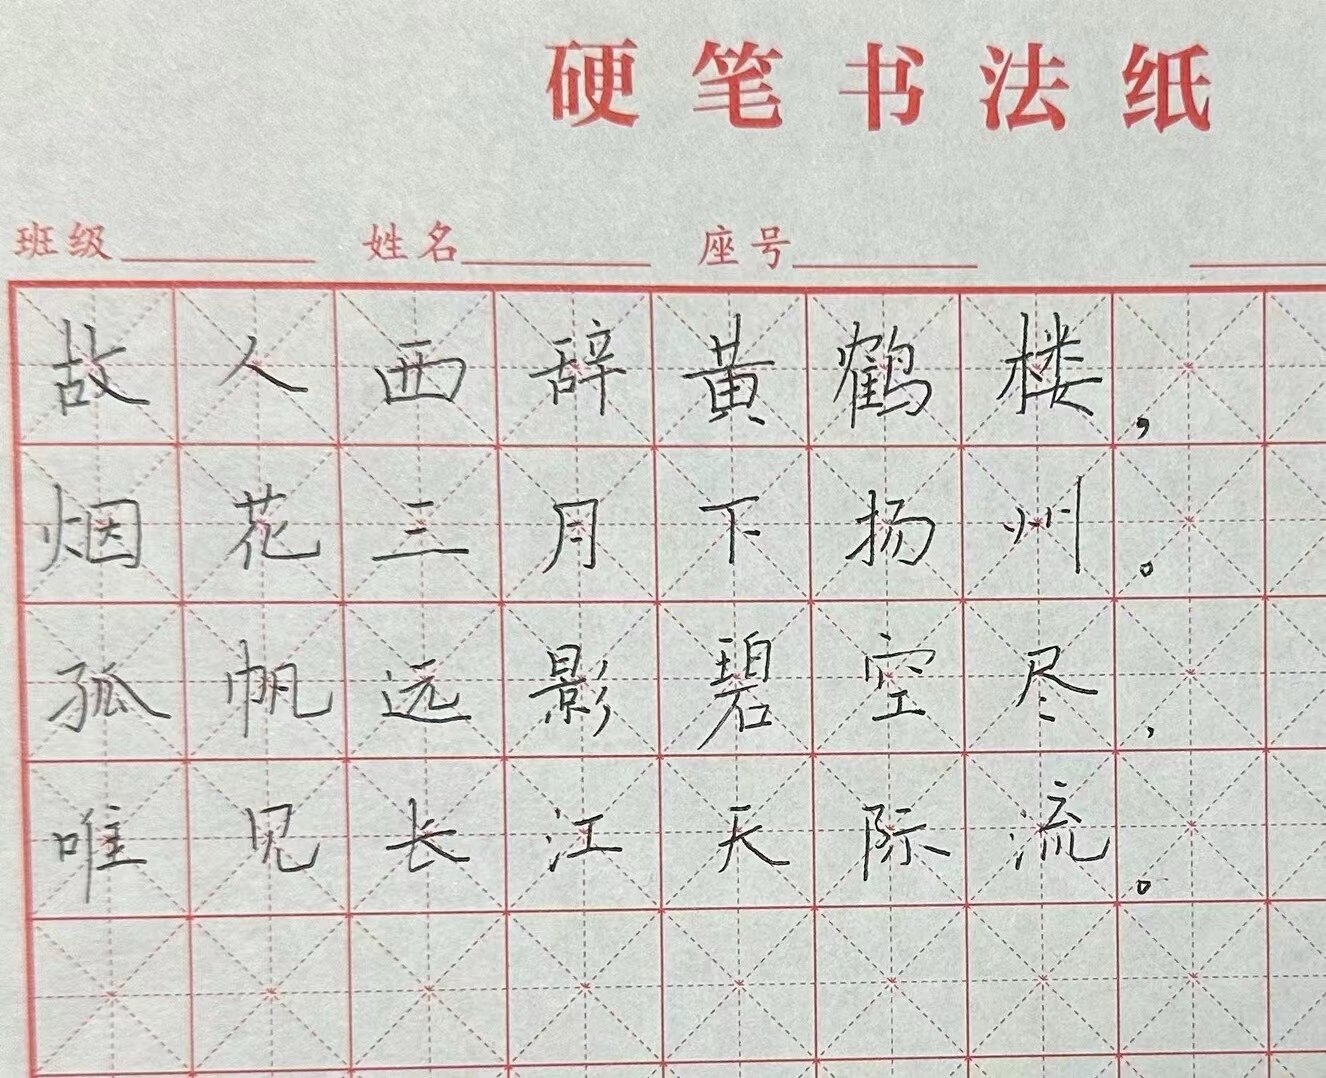 硬笔书法纸
班级 姓名 座号
故人西辞黄鹤楼，
烟花三月下扬州。
孤帆远影碧空尽，
唯见长江天际流。